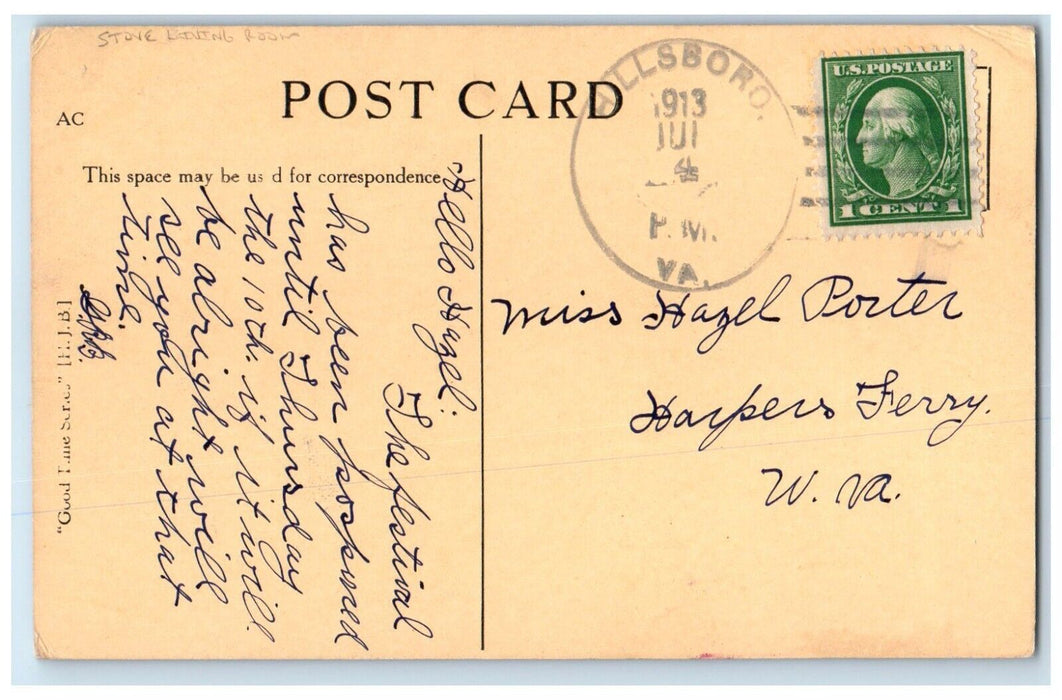 STOVE LIVING ROOM
POST CARD
AC
This space may be us d for correspondence
HILLSBORO,
1913
JUL
4
P.M.
VA.
U.S. POSTAGE
1 CENT 1
Hello Hazel:
The festival
has been posponed
until Thursday
the 10th. if it will
be alright will
see you at that
time.
"Good Time Series" [H.J.B.]
Miss Hazel Porter
Harpers Ferry.
W. Va.